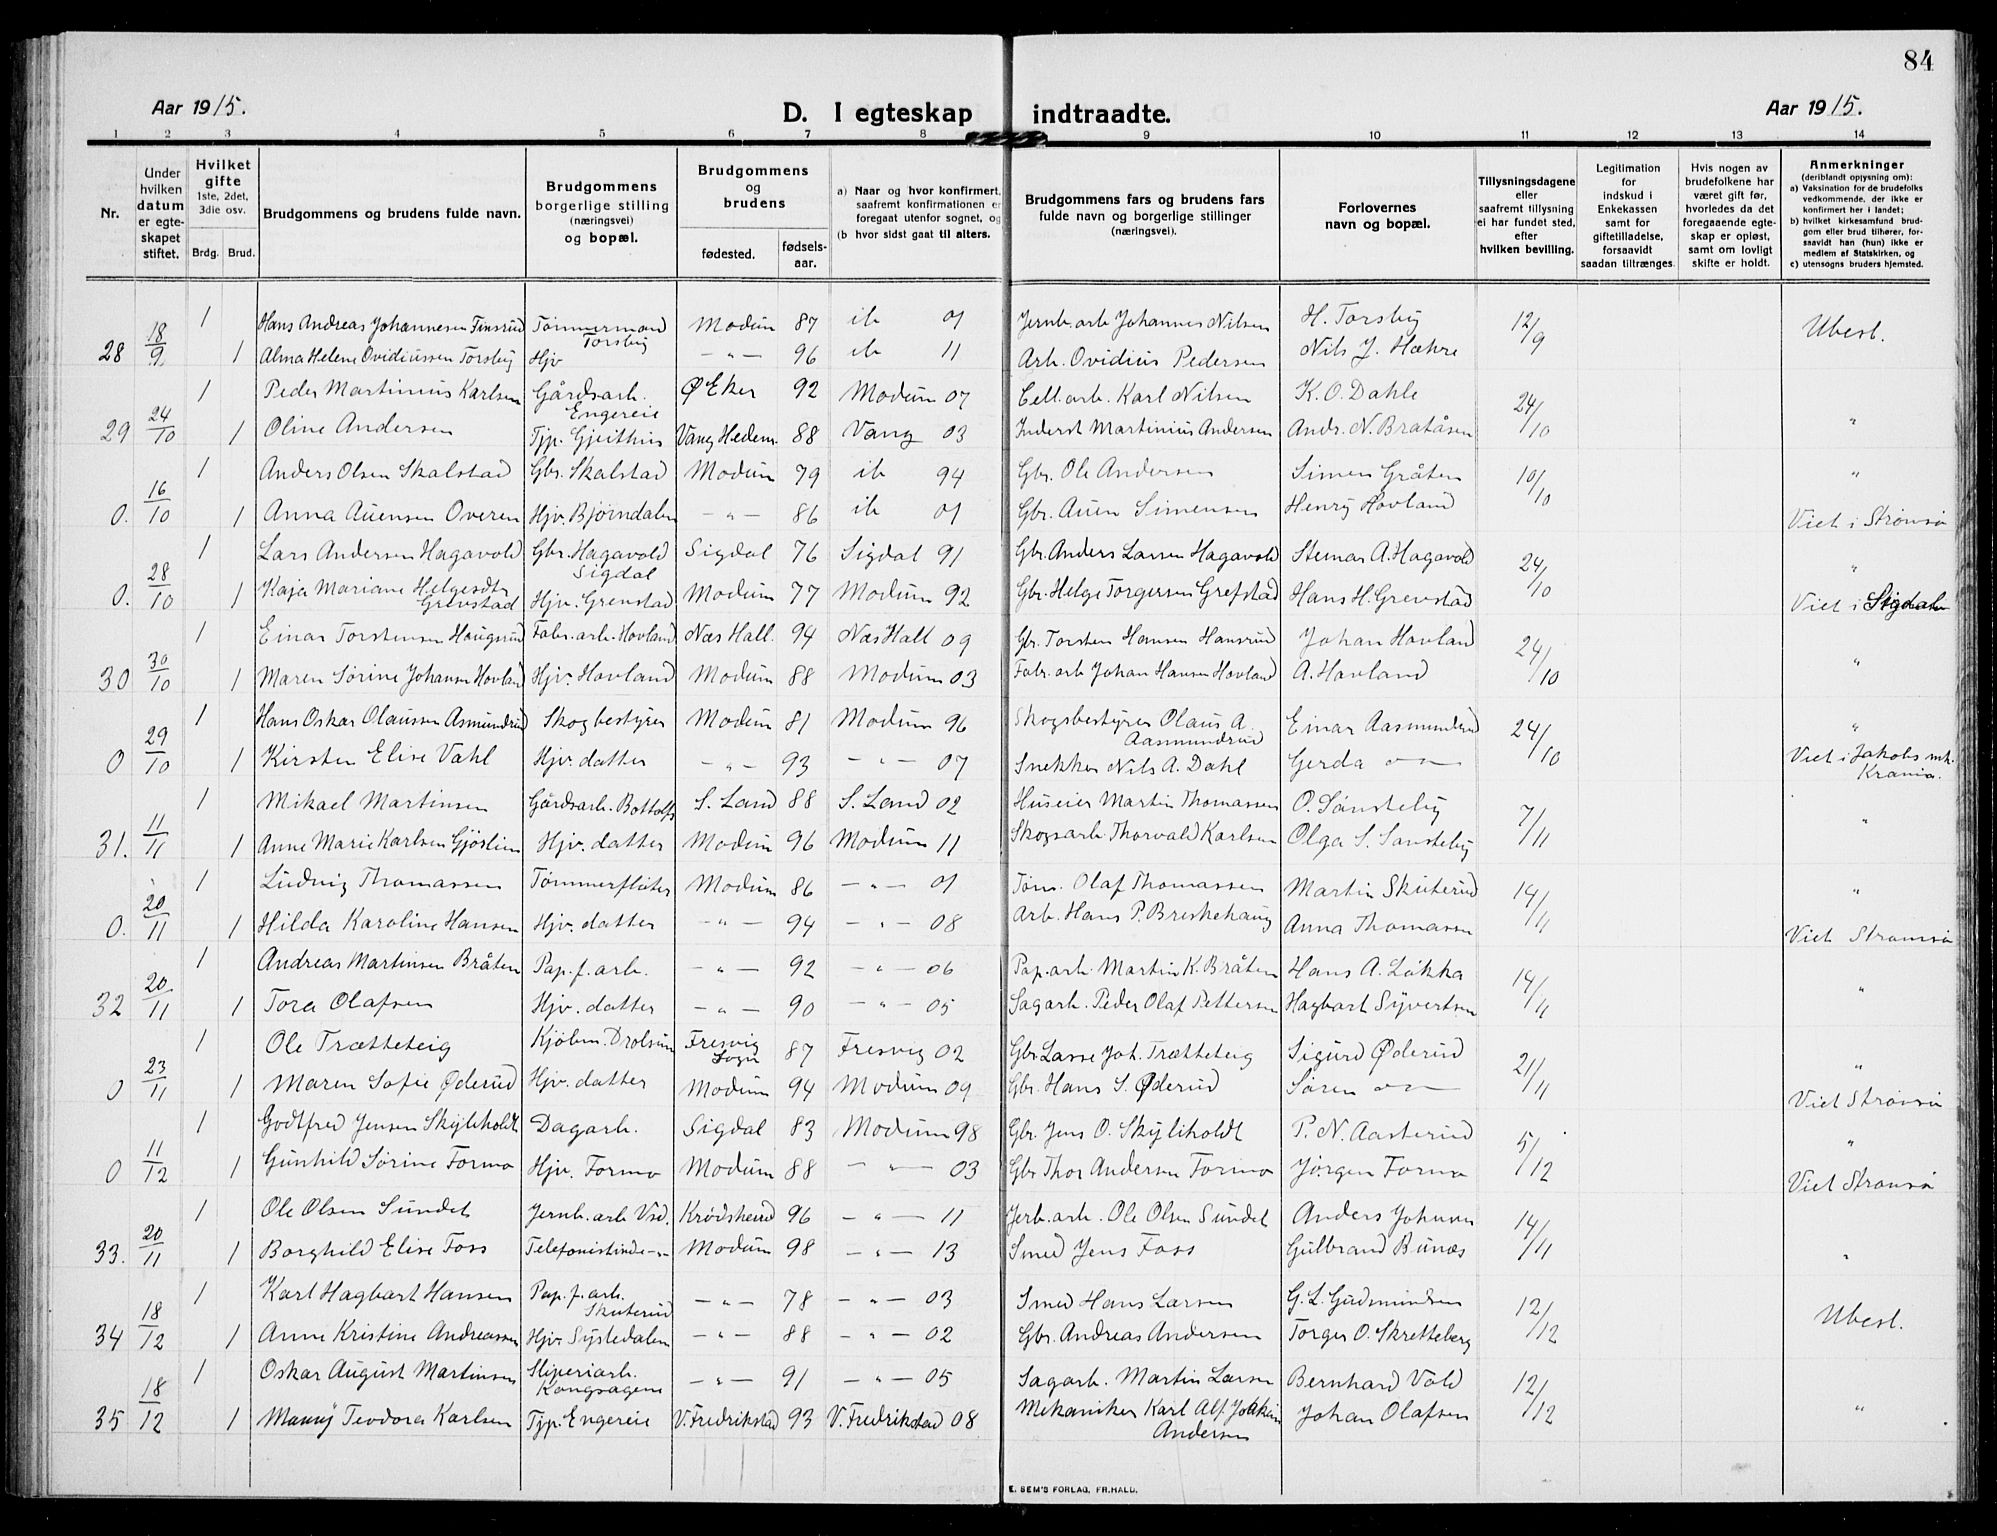 84
Aar 1915.
D. I egteskap indtraadte.
Aar 1915.
1 2 3 4 5 6 7 8 9 10 11 12 13 14
Nr.
Under hvilken datum er egteskapet stiftet.
Hvilket gifte 1ste, 2det, 3die osv. Brdg. Brud.
Brudgommens og brudens fulde navn.
Brudgommens borgerlige stilling (næringsvei) og bopæl.
Brudgommens og brudens fødested. fødselsaar.
a) Naar og hvor konfirmert, saafremt konfirmationen er foregaat utenfor sognet, og
(b hvor sidst gaat til alters.
Brudgommens fars og brudens fars fulde navn og borgerlige stillinger (næringsvei).
Forlovernes navn og bopæl.
Tillysningsdagene eller saafremt tillysning ei har fundet sted, efter hvilken bevilling.
Legitimation for indskud i Enkekassen samt for giftetilladelse, forsaavidt saadan tiltrænges.
Hvis nogen av brudefolkene har været gift før, hvorledes da det foregaaende egteskap er opløst, samt om lovligt skifte er holdt.
Anmerkninger (deriblandt opjysning om):
a) Vaksination for de brudefolks vedkommende, der ikke er konfirmert her i landet;
b) hvilket kirkesamfund brudgom eller brud tilhører, forsaavidt han (hun) ikke er medlem af Statskirken, og
c) utensogns bruders hjemsted.
1 Hans Andreas Johannesen Finsrud Tømmermand Torsby Modum 87 ib 01 Jernb. arb Johannes Nilsen H. Torsby 12/9 Ubesl.
28 18/9 1 Alma Helene Ovidiussen Torsby Hjv -"- 96 ib 11 Arb. Ovidius Pedersen Nils J. Hæhre
1 Peder Martinius Karlsen Gårdsarb. Engereie Ø Eker 92 Modum 07 Cell. arb. Karl Nilsen K. O. Dahle 24/10 "
29 24/10 1 Oline Andersen Tjp. Gjeithus Vang Hedem. 88 Vang 03 Inderst Martinius Andersen Ands. N. Bratåsen
1 Anders Olsen Skalstad Gbr. Skalstad Modum 79 ib 94 Gbr. Ole Andersen Simen Gråten 10/10 "
0. 16/10 1 Anna Auensen Overen Hjv. Bjørndalen -"- 86 ib 01 Gbr. Auen Simensen Henry Hovland Viet i Strømsø
1 Lars Andersen Hagavold Gbr. Hagavold Sigdal Sigdal 76 Sigdal 91 Gbr. Anders Larsen Hagavold Steinar A. Hagavold 24/10 "
0. 28/10 1 Kaja Mariane Helgesdtr Grenstad Hjv. Grenstad Modum 77 Modum 92 Gbr. Helge Torgersen Grefstad Hans H. Grevstad Viet i Sigdalen
1 Einar Torstensen Haugsrud Fabr. arb. Hovland Næs Hall. 94 Næs Hall 09 Gbr. Torsten Hansen Hansrud Johan Hovland 24/10 "
30 30/10 1 Maren Sørine Johansen Hovland Hjv. Hovland Modum 88 Modum 03 Fabr. arb Johan Hansen Hovland A. Hovland
1 Hans Oskar Olaussen Asmundrud Skogbestyrer Modum 81 Modum 96 Skogsbestyrer Olaus A. Aasmundrud Einar Aasmundrud 24/10 "
0 29/10 1 Kirsten Elise Vahl Hjv. datter -"- 93 -"- 07 Snekker Nils A. Dahl Gerda Viet i Jakobs mk. Krania.
1 Mikael Martinsen Gårdsarb. Bottolfs S. Land 88 S. Land 02 Huseier Martin Thomassen O. Sønsteby 7/11 "
31. 11/11 1 Anne Marie Karlsen Gjøslien Hjv. datter Modum 96 Modum 11 Skogsarb. Thorvald Karlsen Olga S. Sønsteby
1 Ludvig Thomassen Tømmerfløter Modum 86 -"- 01 Tøm. Olaf Thomassen Martin Skuterud 14/11 "
0. 20/11 1 Hilda Karoline Hansen Hjv. datter -"- 94 -"- 08 Arb. Hans P. Breskehaug Anna Thomassen Viet Strømsø
1 Andreas Martinsen Bråten Pap. f. arb. -"- 92 -"- 06 Pap. arb. Martin K. Bråten Hans A. Løkka 14/11 "
32 20/11 1 Tora Olafsen Hjv. datter -"- 90 -"- 05 Sagarb. Peder Olaf Pettersen Hagbart Syvertsen
1 Ole Trætteteig Kjøbm. Drolsum Fresvig Sogn 87 Fresvig 02 Gbr Lasse Joh. Trætteteig Sigurd Øderud 21/11 "
0 23/11 1 Maren Sofie Øderud Hjv. datter Modum 94 Modum 09 Gbr. Hans S. Øderud Søren Viet Strømsø
1 Godtfred Jensen Skyliholdt Dagarb. Sigdal 83 Modum 98 Gbr. Jens O. Skyliholdt P. N. Aasterud 5/12 "
0 11/12 1 Gunhild Sørine Formo Hjv. Formo Modum 88 -"- 03 Gbr. Thor Andersen Formo Jørgen Formo Viet Strømsø
1 Ole Olsen Sundet Jernb. arb Krødsherred 96 -"- 11 Jerb. arb. Ole Olsen Sundet Anders Johnsen 14/11
33. 20/11 1 Borghild Elise Foss Telefonistinde -"- Modum 98 -"- 13 Smed Jens Foss Gulbrand Bunæs "
1 Karl Hagbart Hansen Pap. f. arb. Skuterud -"- 78 -"- 03 Smed Hans Larsen G. L. Gudmundsen 12/12 Ubesl.
34 18/12 1 Anne Kristine Andreassen Hjv. Systedalen -"- 88 -"- 02 Gbr. Andreas Andersen Torger O. Skretteberg
1 Oskar August Martinsen Sliperiarb. Kongsagene -"- 91 -"- 05 Sagarb. Martin Larsen Bernhard Vold 12/12
35 18/12 1 Manny Teodora Karlsen Tjp. Engereie V. Fredrikstad 93 V. Fredrikstad 08 Mekaniker Karl Alf Joakim Andersen Johan Olafsen "
E. SEM'S FORLAG, FR.HALD.